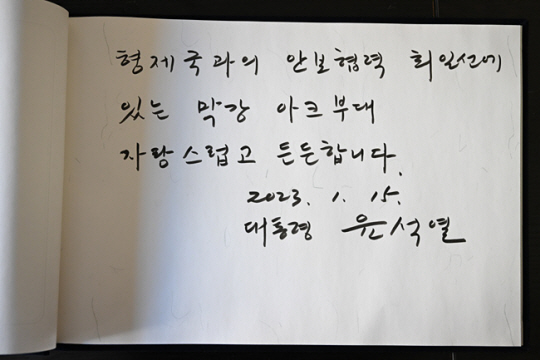 형제국과의 안보협력 최일선에
있는 막강 아크부대
자랑스럽고 든든합니다.
2023. 1. 15.
대통령 윤석열